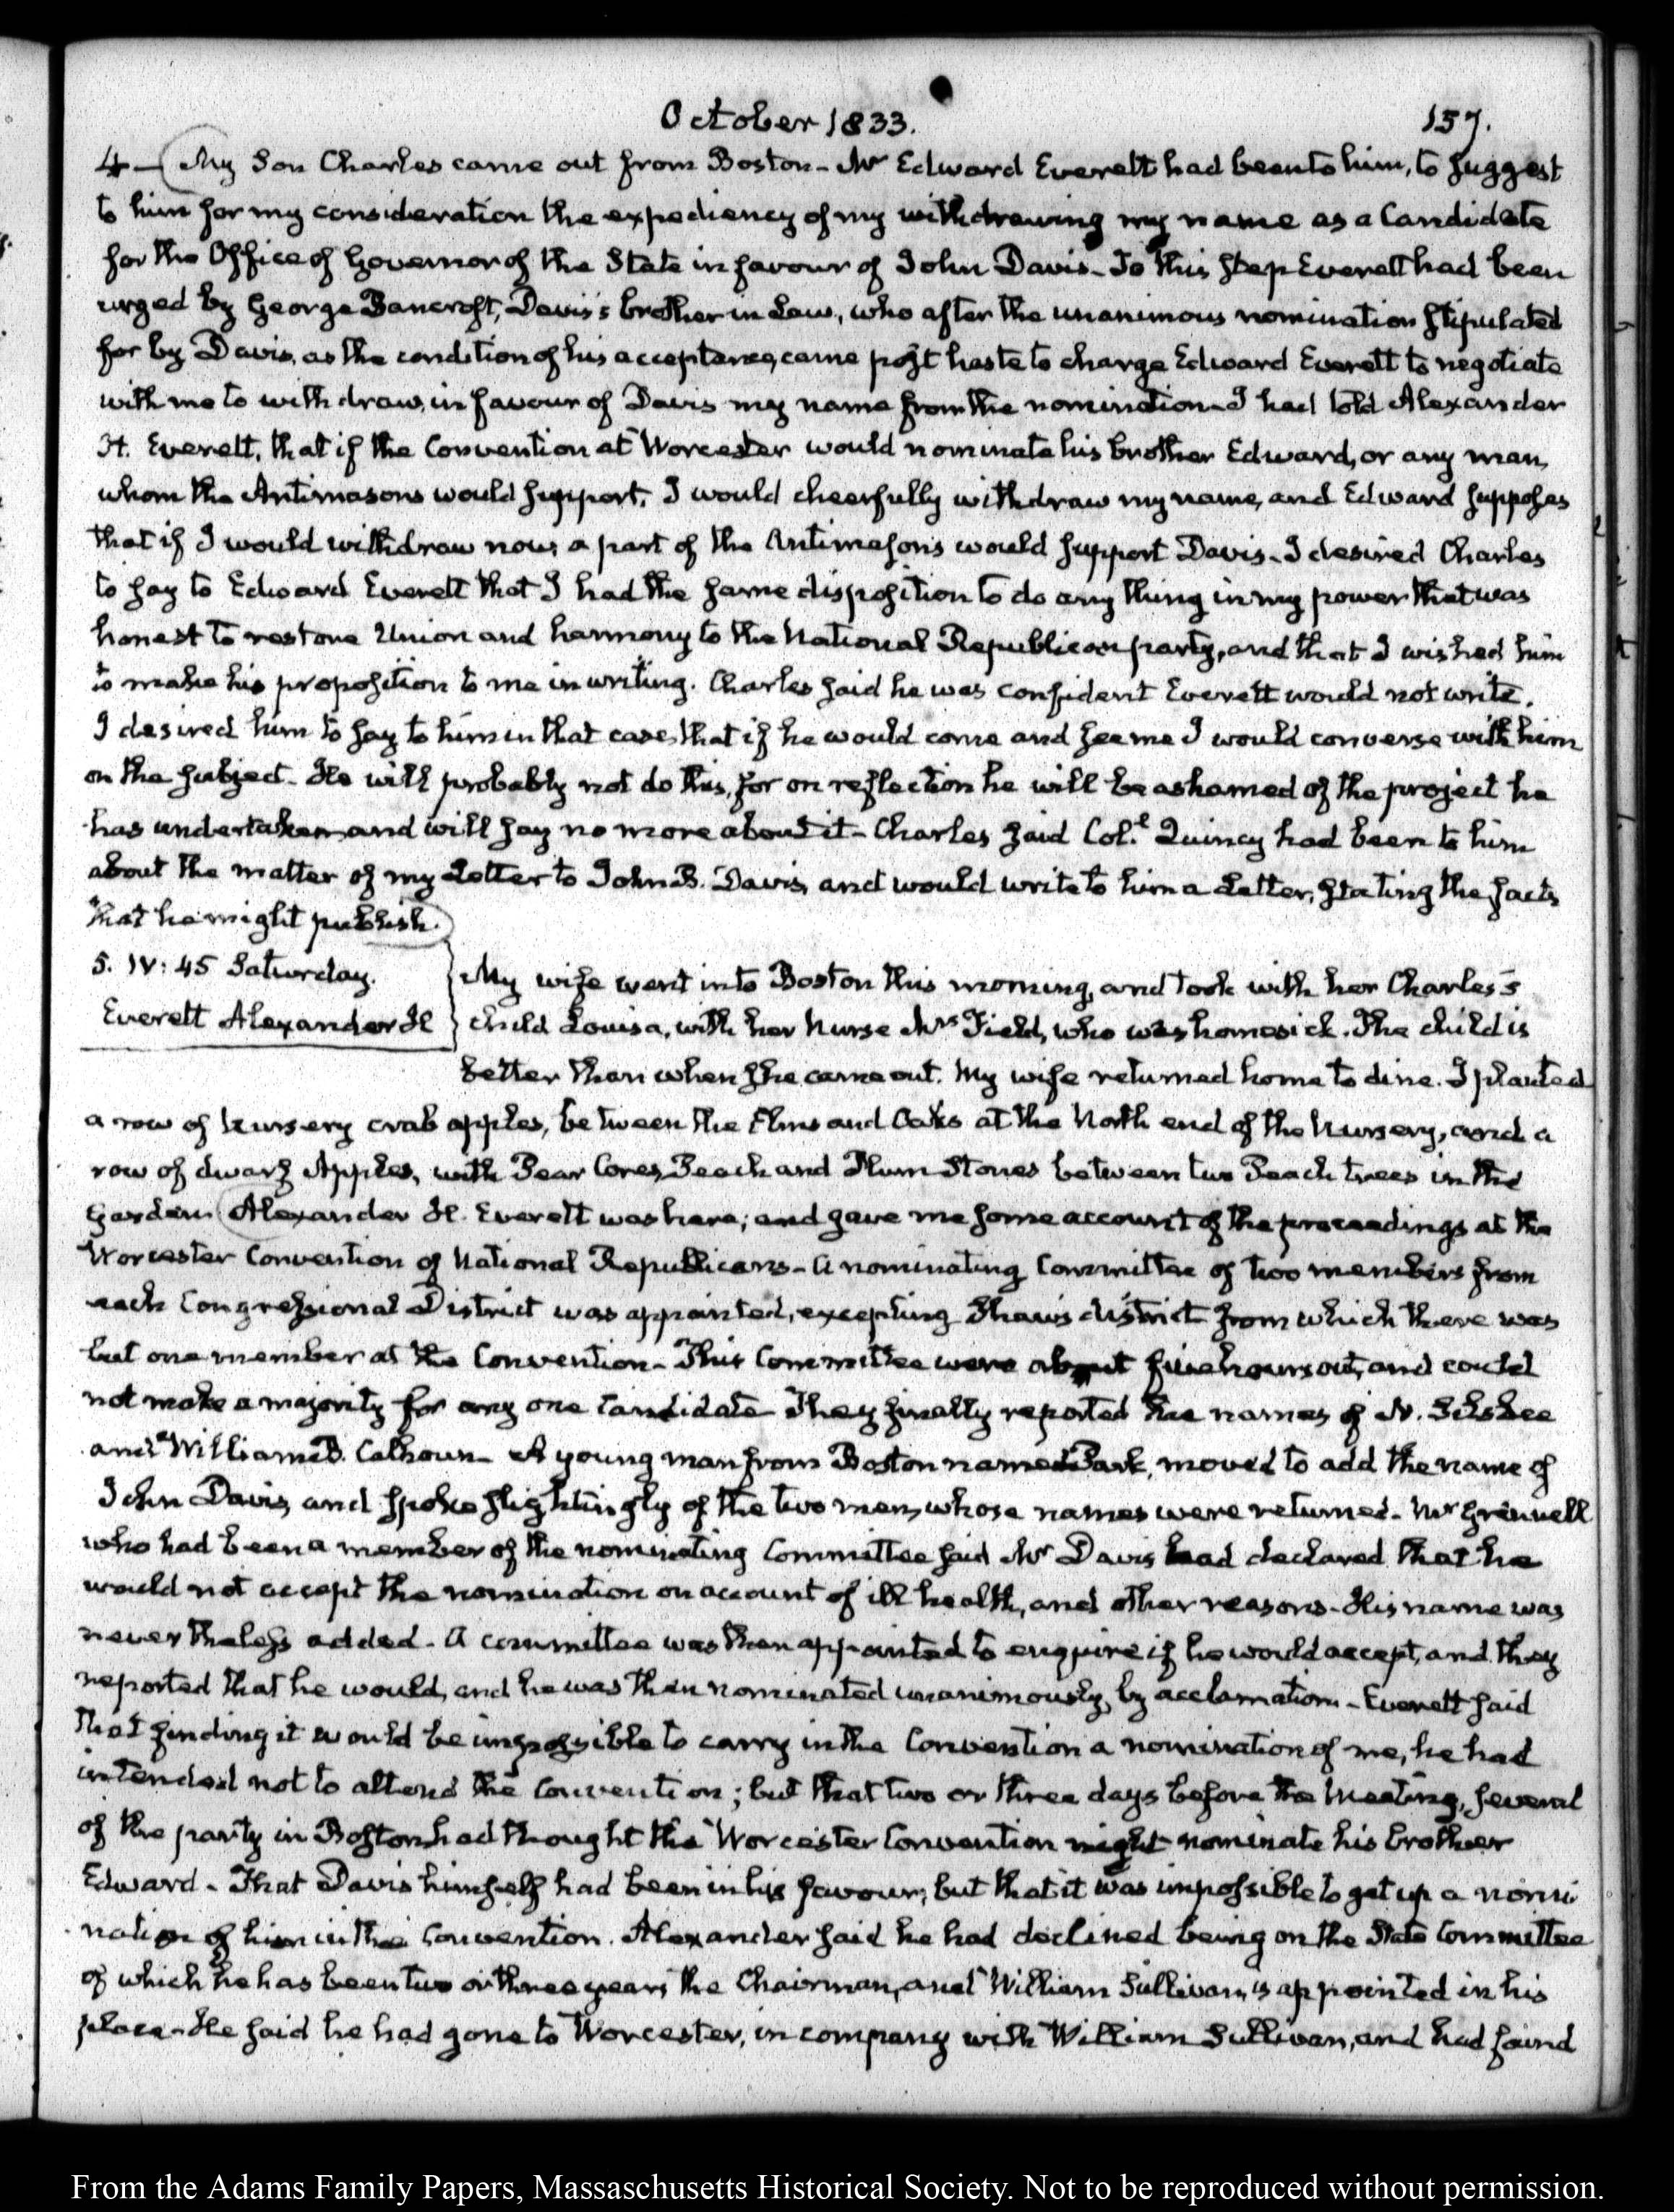 October 1833.
157.
4 — My Son Charles came out from Boston - Mr Edward Everett had been to him, to suggest
to him for my consideration the expediency of my withdrawing my name as a Candidate
for the Office of Governor of the State in favour of John Davis - To this step Everett had been
urged by George Bancroft, Davis's brother in Law, who after the unanimous nomination stipulated
for by Davis, as the condition of his acceptance, came post haste to charge Edward Everett to negotiate
with me to withdraw, in favour of Davis my name from the nomination - I had told Alexander
H. Everett, that if the Convention at Worcester would nominate his brother Edward, or any man,
whom the Antimasons would support, I would cheerfully withdraw my name, and Edward supposes
that if I would withdraw now, a part of the Antimasons would support Davis - I desired Charles
to say to Edward Everett that I had the same disposition to do any thing in my power that was
honest to restore Union and harmony to the National Republican party, and that I wished him
to make his proposition to me in writing. Charles said he was confident Everett would not write.
I desired him to say to him in that case, that if he would come and see me I would converse with him
on the subject - He will probably not do this, for on reflection he will be ashamed of the project he
has undertaken, and will say no more about it - Charles said Col.l Quincy had been to him
about the matter of my Letter to John B. Davis, and would write to him a Letter, stating the facts
that he might publish.
5. IV: 45 Saturday.
Everett Alexander H
My wife went into Boston this morning, and took with her Charles's
child Louisa, with her Nurse Mrs Field, who was homesick. The child is
better than when she came out. My wife returned home to dine. I planted
a row of Nursery crab apples, between the Elms and Oaks at the North end of the Nursery, and a
row of dwarf Apples, with Pear Cores, Peach and Plum Stones between two Peach trees in the
Garden. Alexander H. Everett was here; and gave me some account of the proceedings at the
Worcester Convention of National Republicans - A nominating Committee of two members from
each Congressional District was appointed, excepting Shaw's district from which there was
but one member at the Convention - This Committee were about five hours out, and could
not make a majority for any one Candidate - They finally reported the names of N. Silsbee
and William B. Calhoun - A young man from Boston named Park, moved to add the name of
John Davis, and spoke slightingly of the two men, whose names were returned - Mr Grennell
who had been a member of the nominating Committee said Mr Davis had declared that he
would not accept the nomination on account of ill health, and other reasons - His name was
nevertheless added - A committee was then appointed to enquire if he would accept, and they
reported that he would, and he was then nominated unanimously, by acclamation - Everett said
that finding it would be impossible to carry in the Convention a nomination of me, he had
intended not to attend the Convention; but that two or three days before the Meeting, several
of the party in Boston had thought the Worcester Convention might nominate his brother
Edward - That Davis himself had been in his favour; but that it was impossible to get up a nomi
nation of him in the Convention. Alexander said he had declined being on the State Committee
of which he has been two or three years the Chairman, and William Sullivan, is appointed in his
place - He said he had gone to Worcester, in company with William Sullivan, and had found
From the Adams Family Papers, Massachusetts Historical Society. Not to be reproduced without permission.